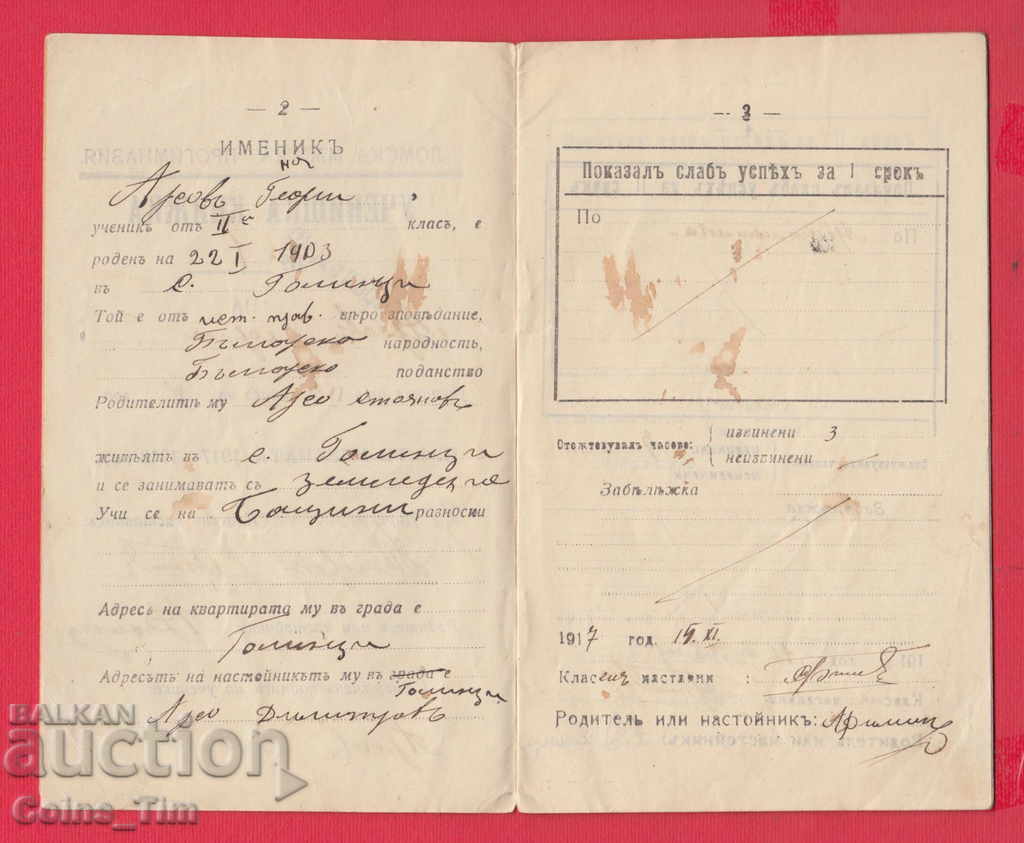 — 2 —
ИМЕНИКЪ
Арсовъ Георги
ученикъ отъ II класъ, е
роденъ на 22 I 1903
въ с. Голинци
Той е отъ ист. прав. вѣроизповѣдание,
Българско народность,
Българско поданство
Родителитѣ му Арсо Стоянов
живѣятъ въ с. Голинци
и се занимаватъ съ земледелие
Учи се на Бащини разноски
Адресъ на квартирата му въ града е
Голинци
Адресътъ на настойникътъ му въ града е
Голинци
Арсо Димитровъ
— 3 —
Показалъ слабъ успѣхъ за I срокъ
По
Отсѫтствувалъ часове: извинени 3
неизвинени
Забѣлѣжка
1917 год. 15. XI.
Класенъ наставни :
Родитель или настойникъ:
BALKAN
auction
Coins_Tim